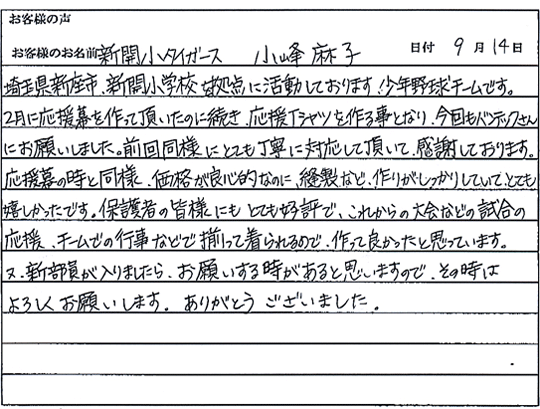 お客様の声
お客様のお名前 新開小タイガース 小峰 麻子 日付 9月14日
埼玉県新座市、新開小学校を拠点に活動しております、少年野球チームです。
2月に応援幕を作って頂いたのに続き、応援Tシャツを作る事となり、今回もバンテックさん
にお願いしました。前回同様にとても丁寧に対応して頂いて、感謝しております。
応援幕の時と同様、価格が良心的なのに、縫製など、作りがしっかりしていて、とても
嬉しかったです。保護者の皆様にもとても好評で、これからの大会などの試合の
応援、チームでの行事などで揃って着られるので、作って良かったと思っています。
又、新部員が入りましたら、お願いする時があると思いますので、その時は
よろしくお願いします。ありがとうございました。